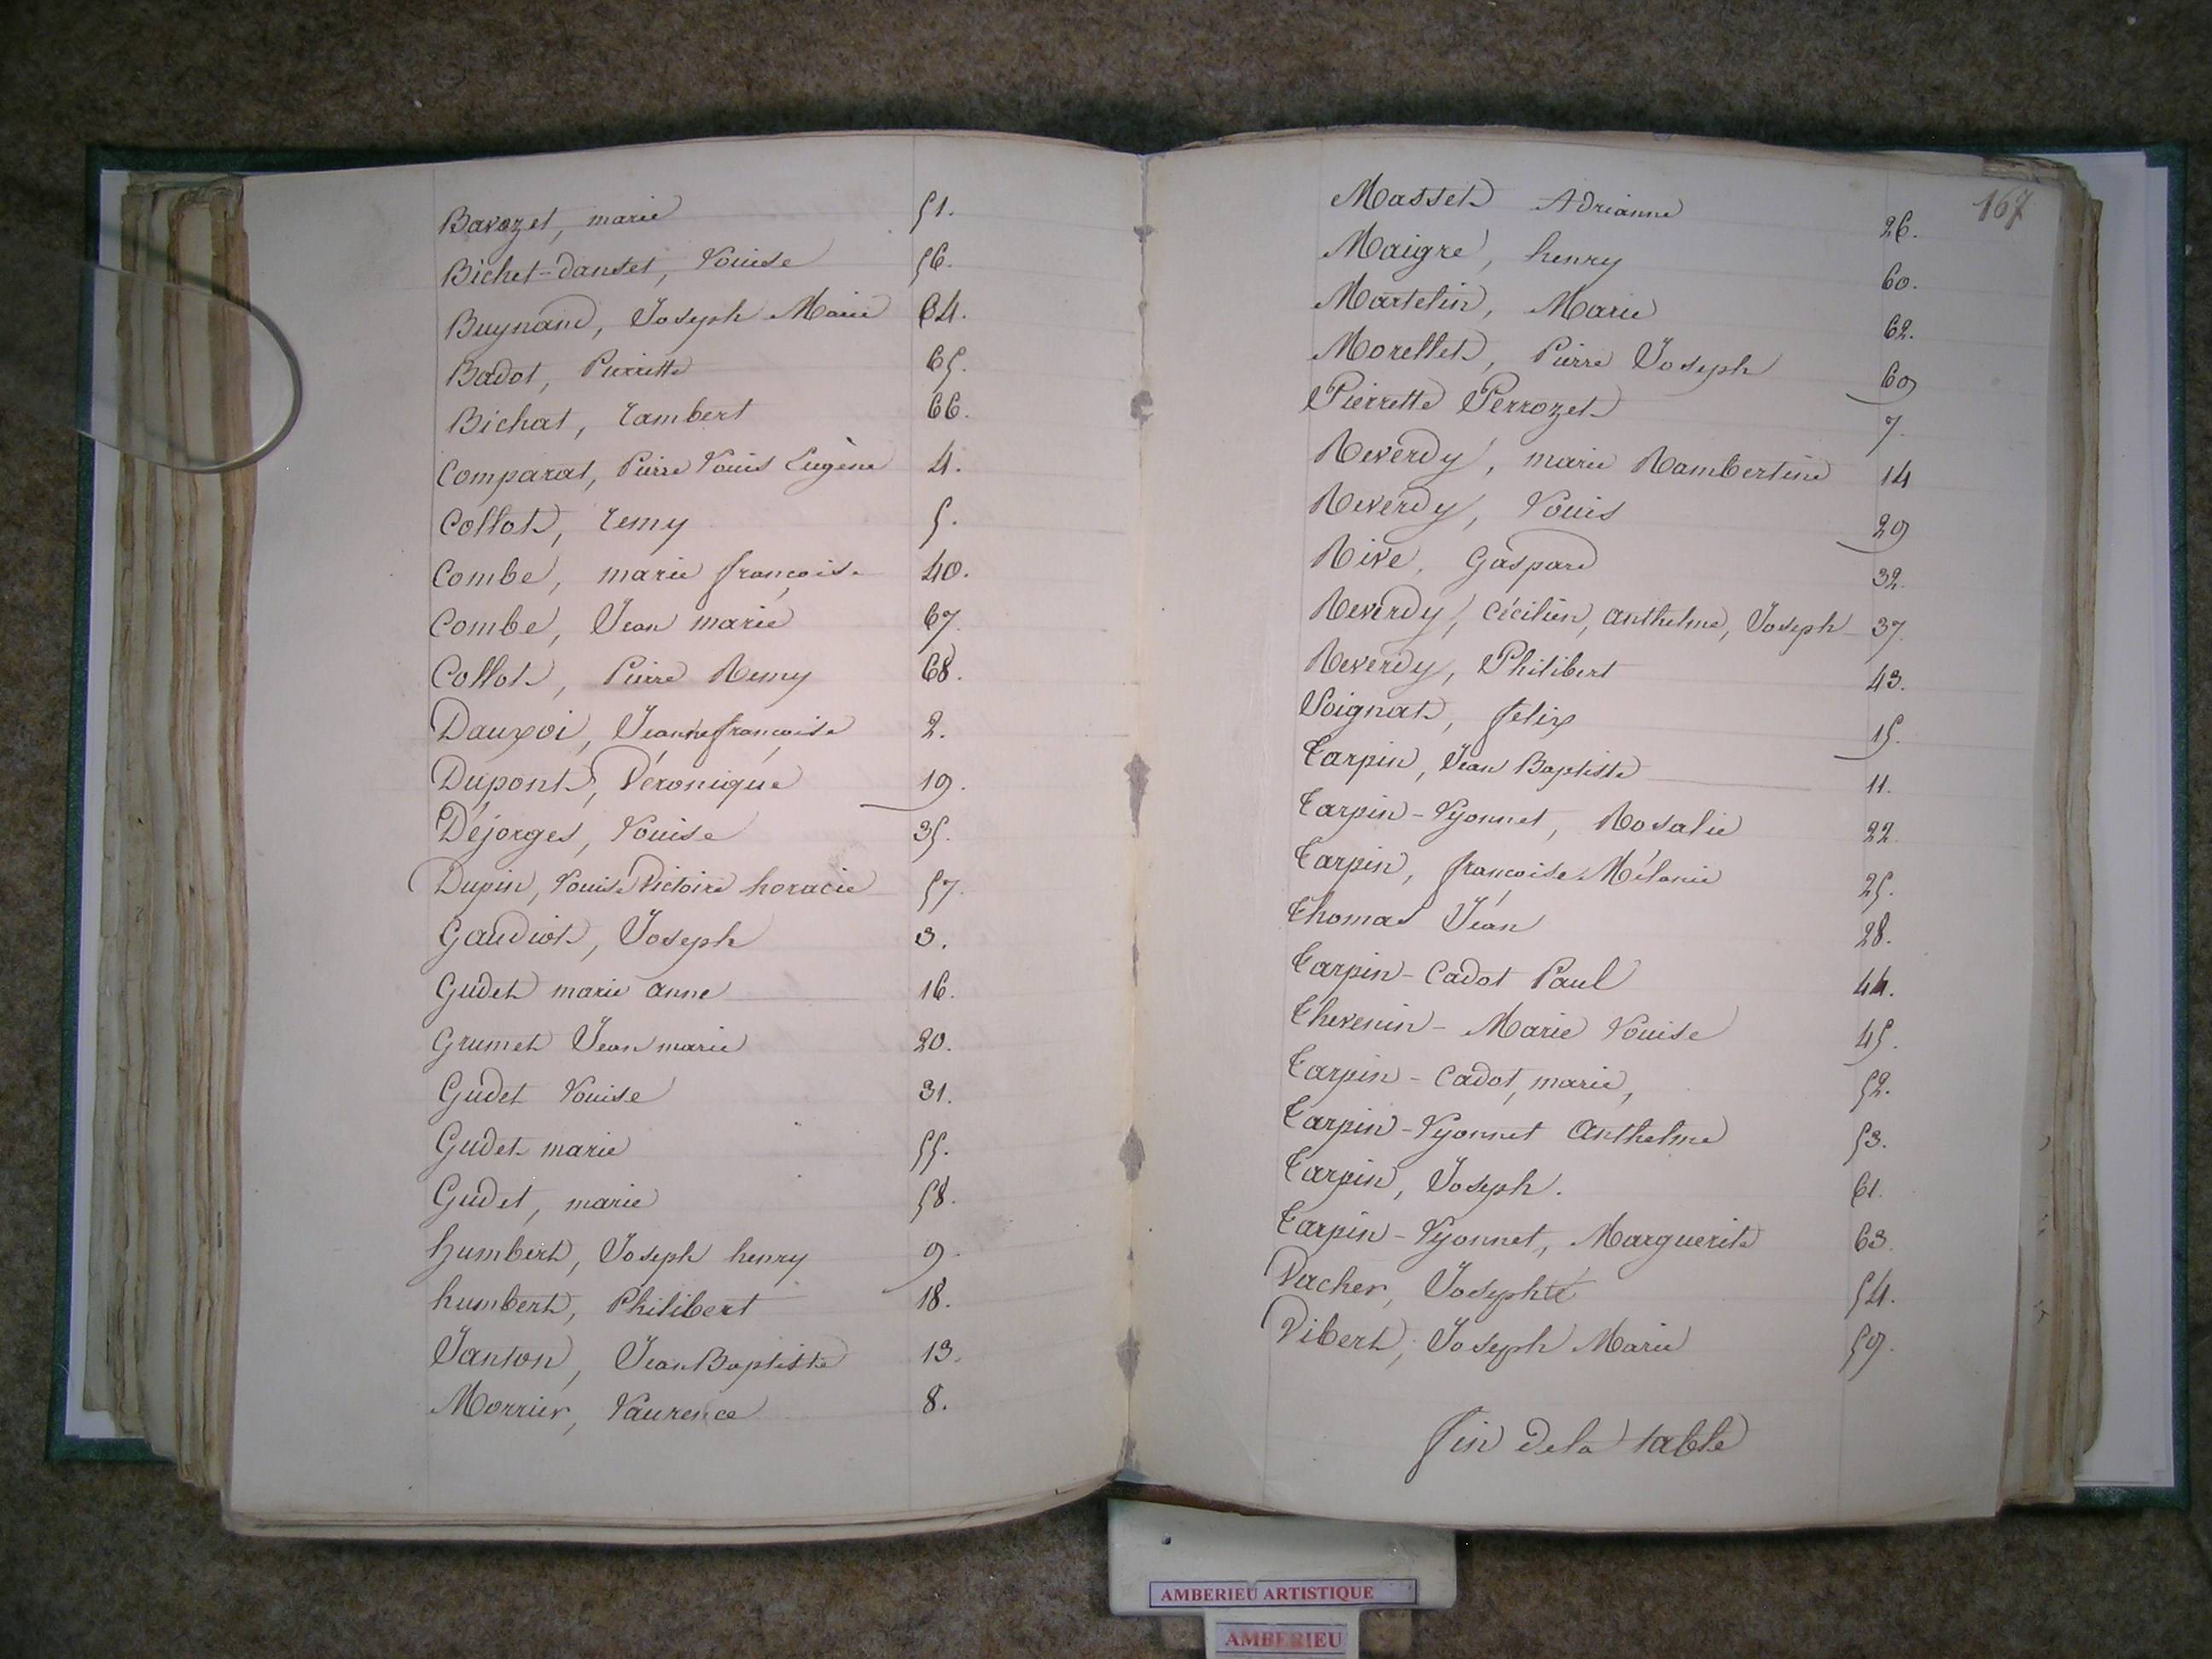 Bavozet, marie 51.
Bichet-danset, Louise 56.
Buynand, Joseph Marie 64.
Badot, Pierrette 65.
Bichat, Lambert 66.
Comparat, Pierre Louis Eugène 4.
Collot, remy 5.
Combe, marie françoise 40.
Combe, Jean marie 67.
Collot, Pierre Remy 68.
Dauxoi, Jeanne françoise 2.
Dupont, Véronique 19.
Déjorges, Louise 35.
Dupin, Louise Victoire horacie 57.
Gaudiot, Joseph 3.
Gudet marie anne 16.
Grumet Jean marie 20.
Gudet Louise 31.
Gudet marie 55.
Gudet, marie 58.
humbert, Joseph henry 9.
humbert, Philibert 18.
Janton, Jean Baptiste 13.
Morrier, Laurence 8.
167
Masset Adrianne 26.
Maigre, henry 60.
Martelin, Marie 62.
Morellet, Pierre Joseph 69
Pierrette Perrozet 7.
Reverdy, marie Rambertine 14
Reverdy, Louis 29
Rive, Gaspard 32.
Reverdy, Cécilien, anthelme, Joseph 37.
Reverdy, Philibert 43.
Soignat, felix 15.
Tarpin, Jean Baptiste 11.
Tarpin-Vyonnet, Rosalie 22
Tarpin, françoise Mélanie 25.
Thomas Jean 28.
Tarpin-Cadot Paul 44.
Thevenin-Marie Louise 45.
Tarpin-Cadot, marie, 52.
Tarpin-Vyonnet Anthelme 53.
Tarpin, Joseph. 61.
Tarpin-Vyonnet, Marguerite 63.
Vacher, Josephte 54.
Vibert, Joseph Marie 59.
fin de la table
AMBERIEU ARTISTIQUE
AMBERIEU